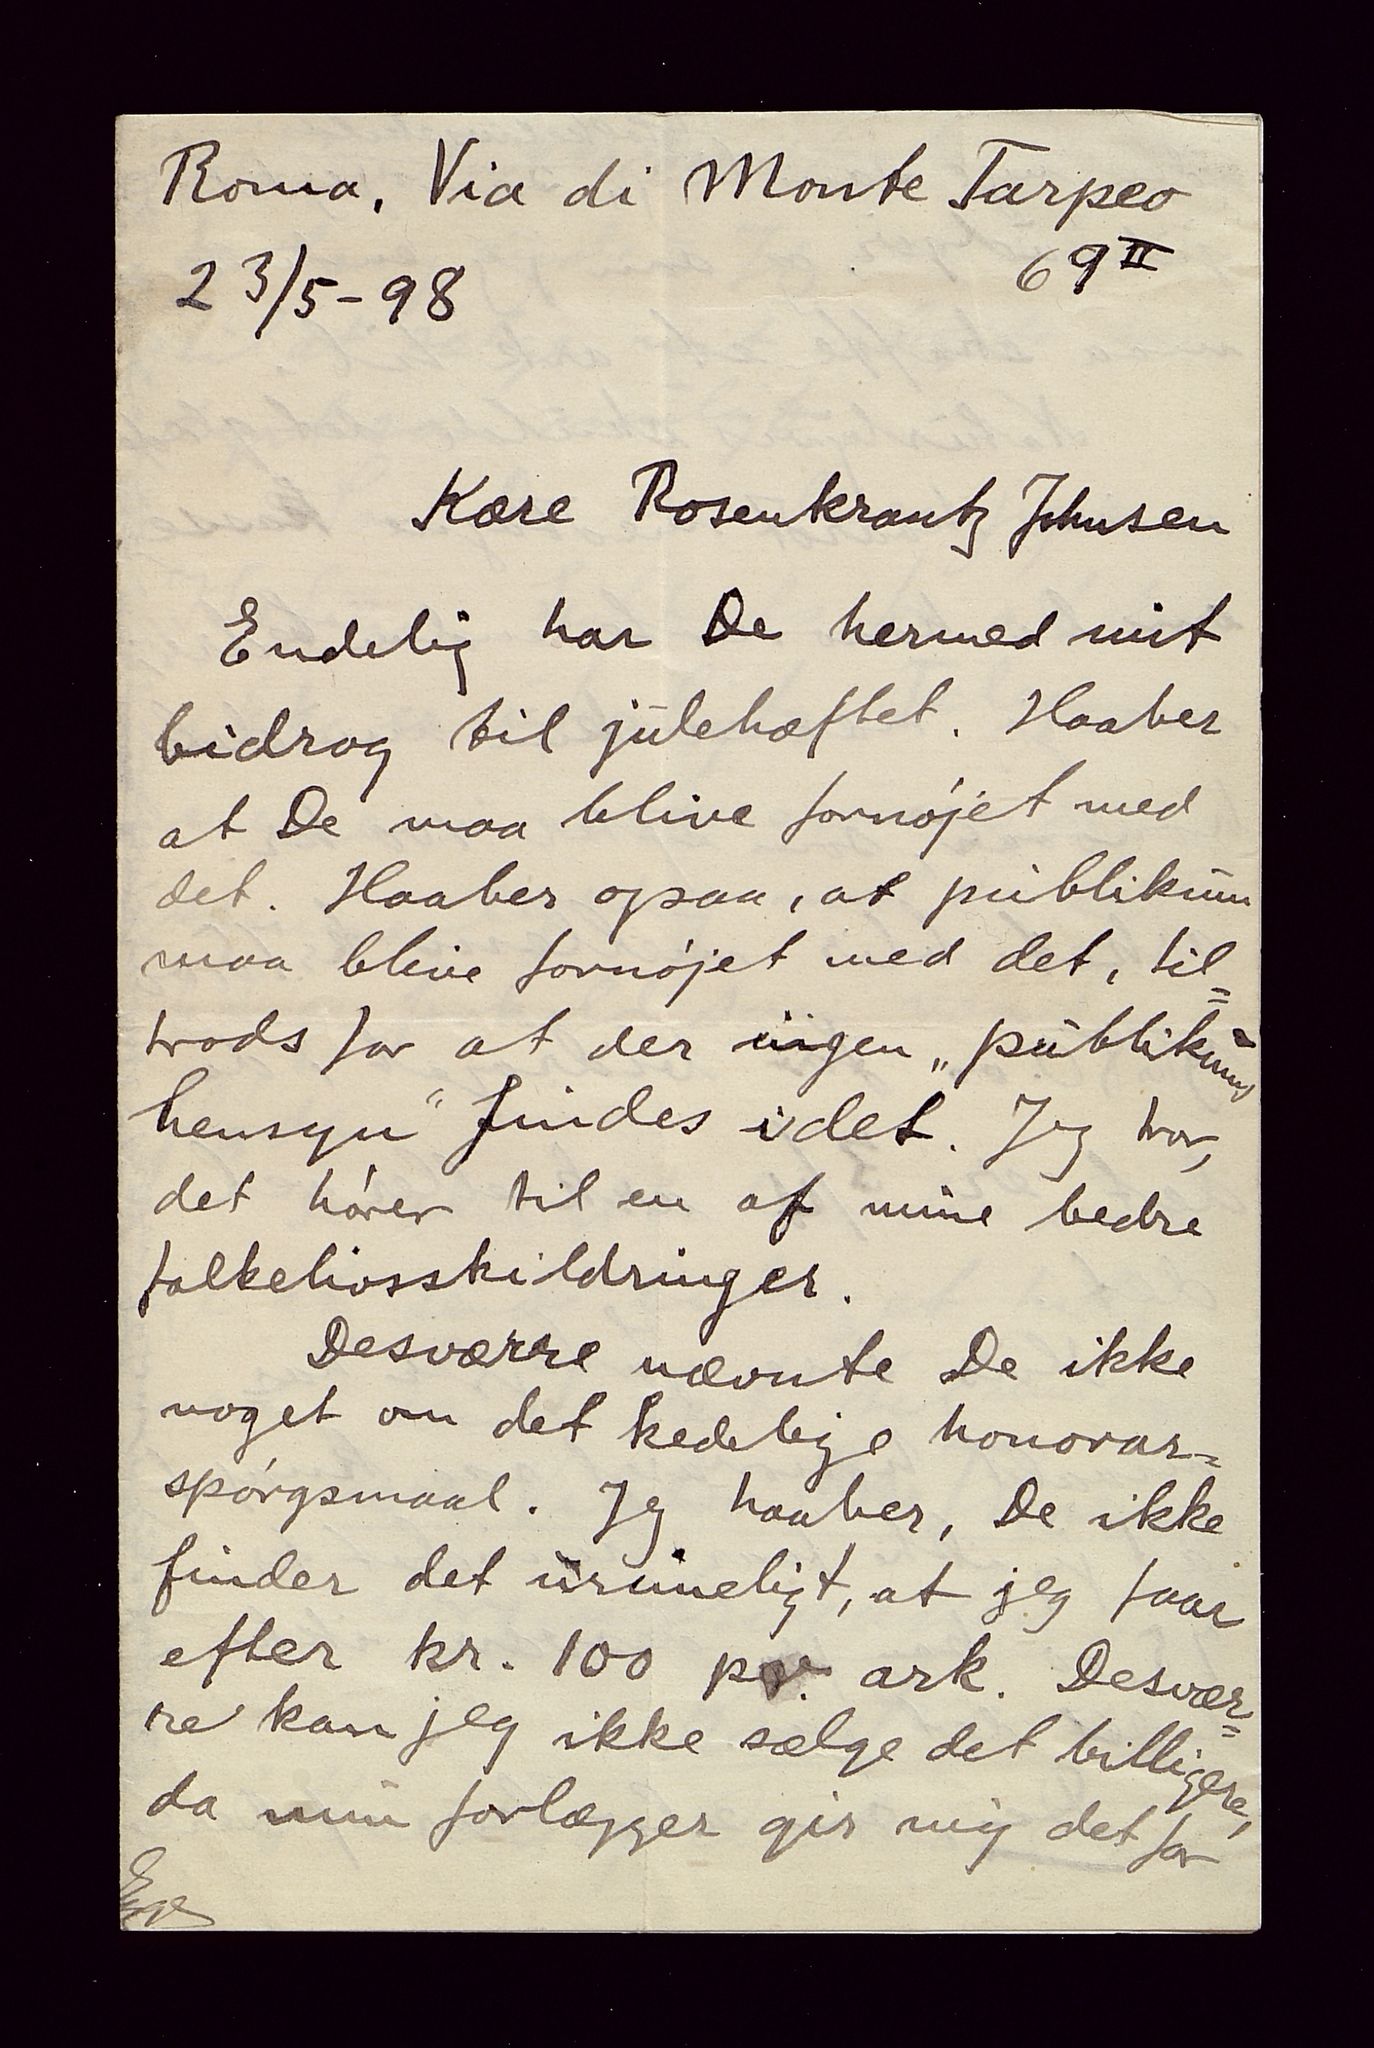 Roma, Via di Monte Tarpeo
69 II
23/5-98
Kære Rosenkrantz Johnsen
Endelig har De hermed mit
bidrag til julehæftet. Haaber
at De maa blive fornøjet med
det. Haaber ogsaa, at publikum
maa blive fornøjet med det, til=
trods for at der ingen „publikums
hensyn“ findes i det. Jeg tror,
det hører til en af mine bedre
folkelivsskildringer.
Desværre nævnte De ikke
noget om det kedelige honorar-
spørgsmaal. Jeg haaber, De ikke
finder det urimeligt, at jeg faar
efter kr. 100 pr. ark. Desvær=
re kan jeg ikke sælge det billigere,
da min forlægger gir mig det for